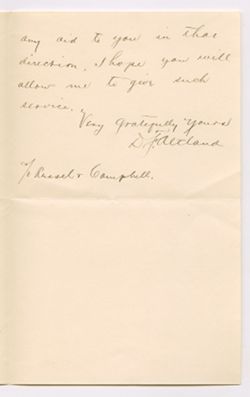 any aid to you in that
direction. I hope you will
allow me to give such
service.
Very gratefully Yours
D. F.
& Campbell.